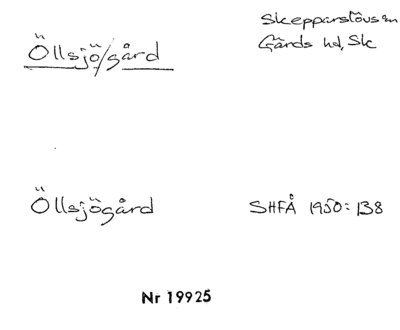 Öllsjö/gård
Skepparslövs sn
Gärds hd, Sk
Öllsjögård
SHFÅ 1950:138
Nr 19925